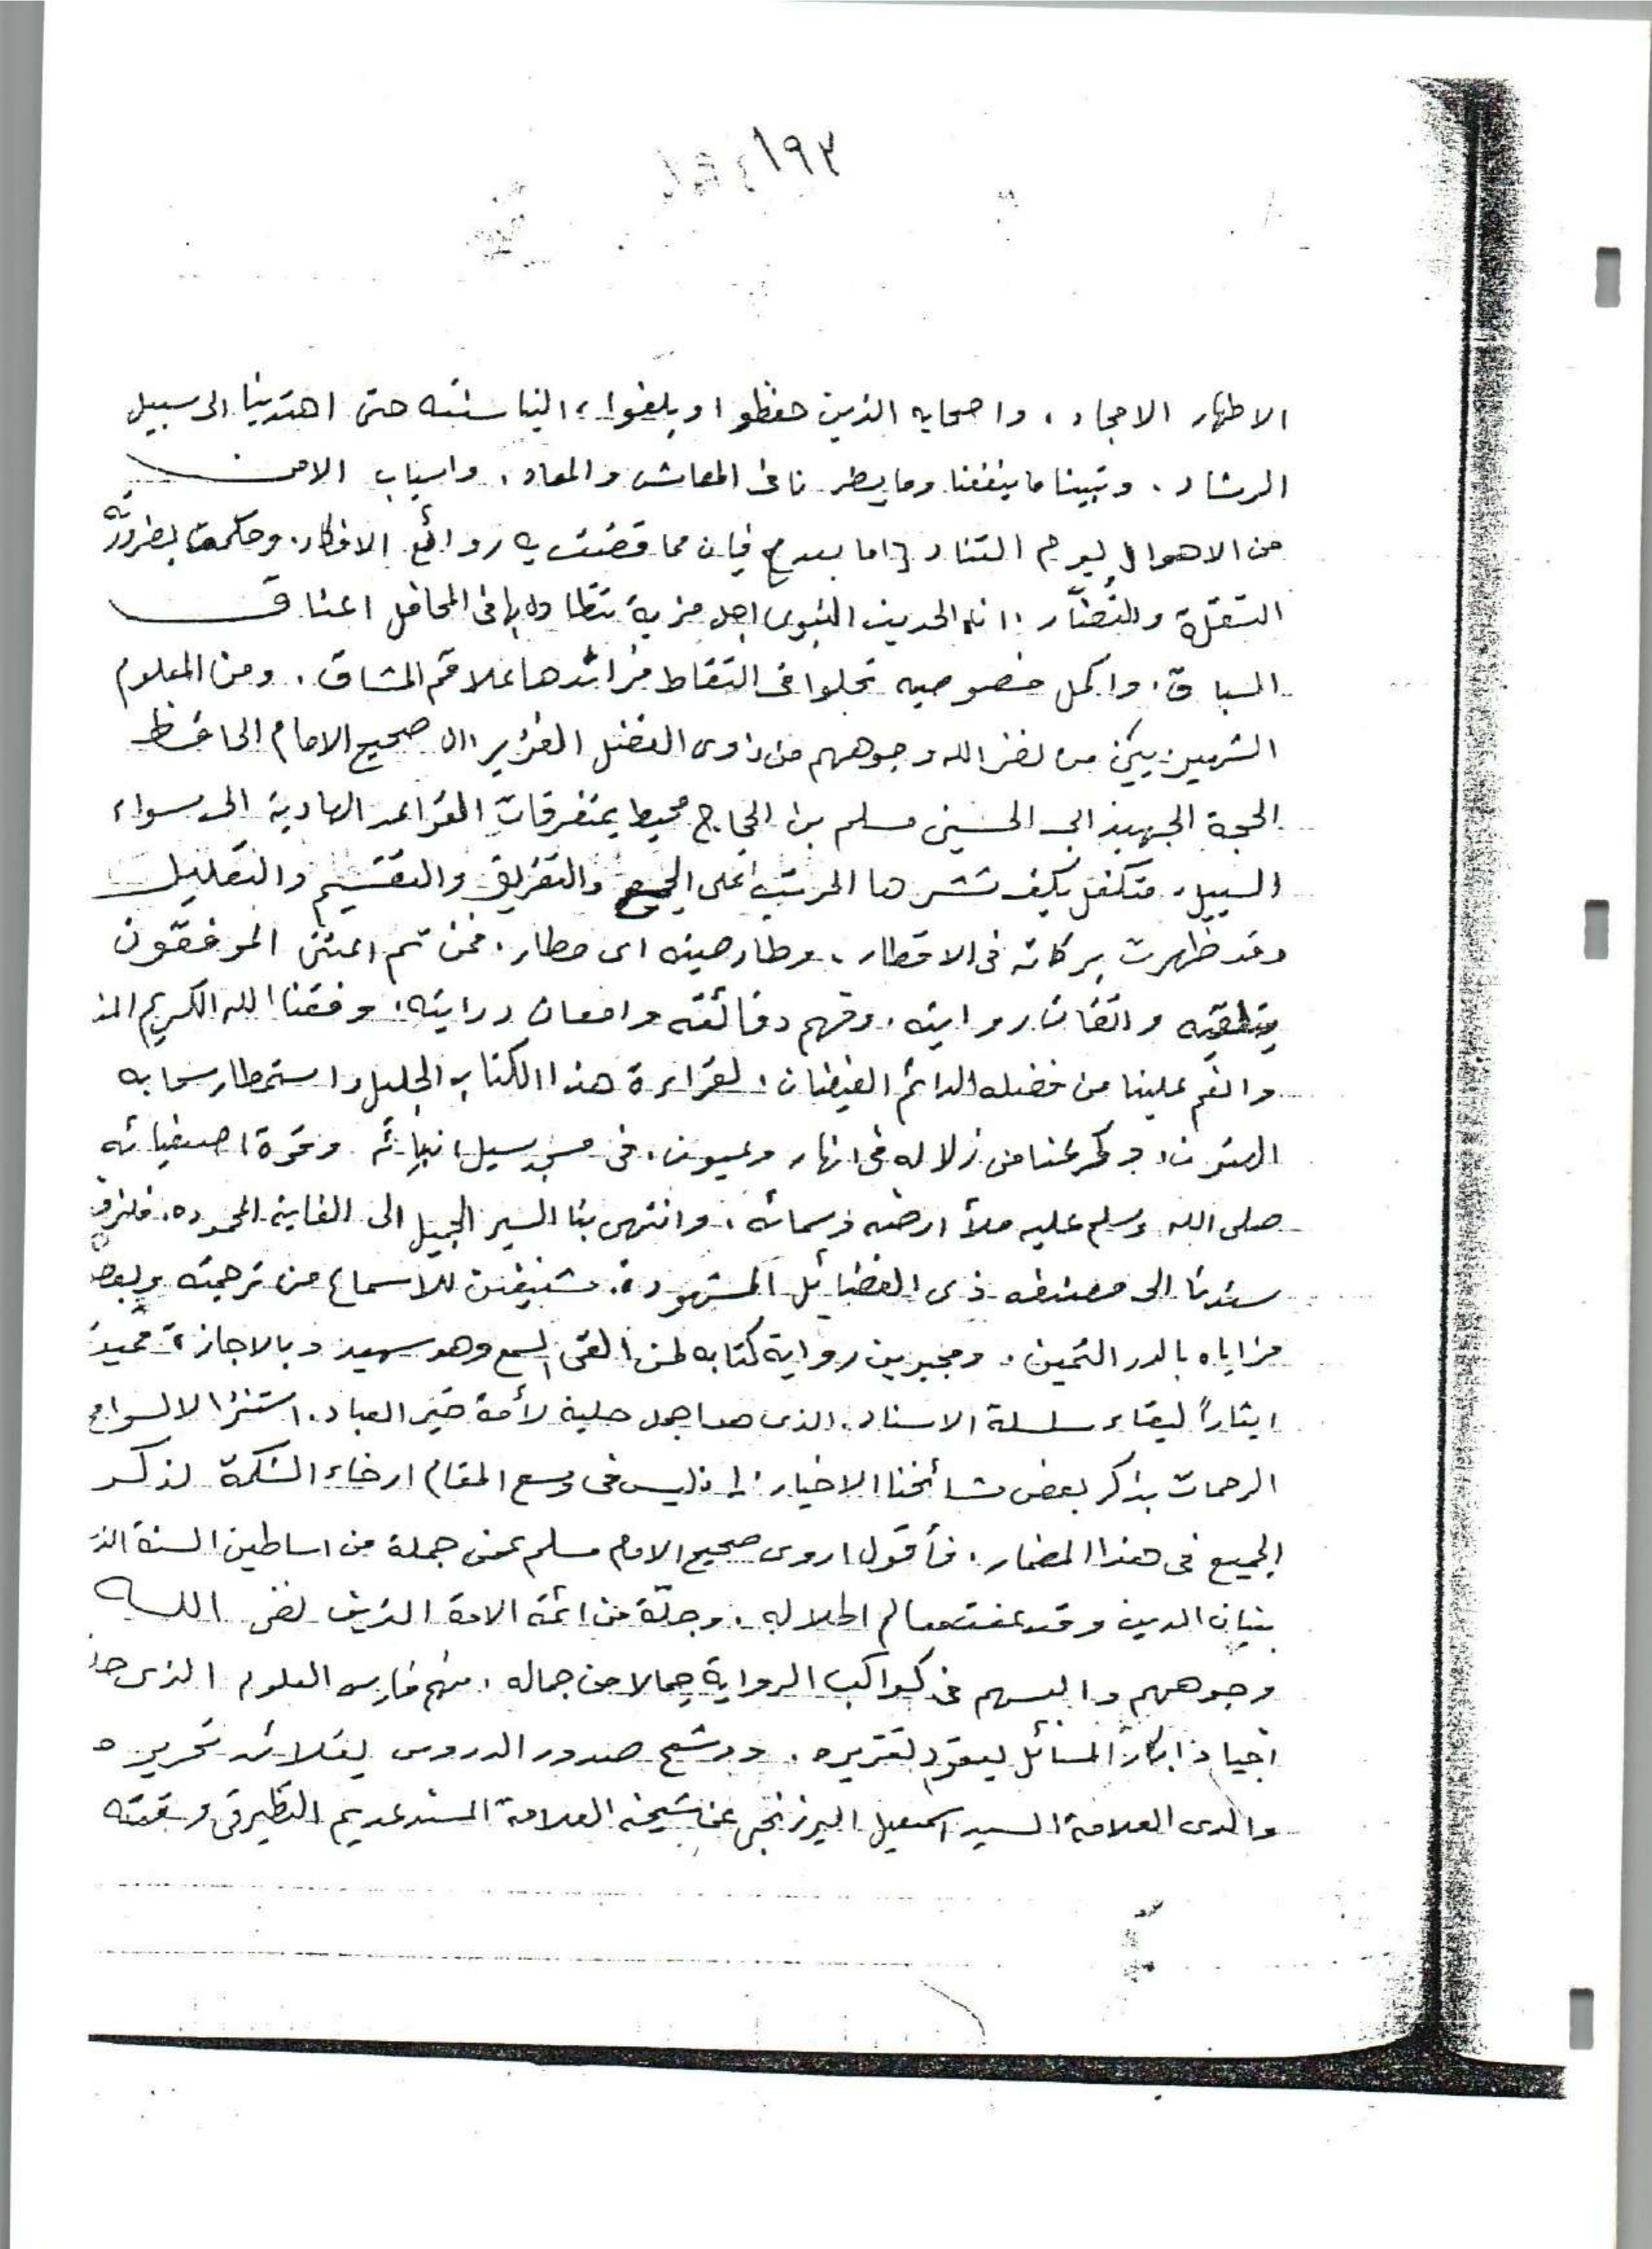 ١٩٣
الاطهار الامجاد ، واصحابه الذين حفظوا وبلغوا ، الينا سنته حتى اهتدينا الى سبيل
الرشاد . وتبينا ما ينفعنا وما يضرنا فى المعاش والمعاد ، واسباب الامن
من الاهوال ليوم التناد { اما بعد } فان مما قضت به روائع الافكار . وحكمت بضرورته
العقلاء والنضار ، ان الحديث النبوى اجل مزية تتطاول بها فى المحافل اعناق
السباق ، واكمل خصوصيه تحلوا فى التقاط فرائدها علاقم المشاق . ومن المعلوم
الشهير بين من نضر الله وجوههم من ذوى الفضل الغزير ، ان صحيح الامام الحافظ
الحجة الجهبذ ابى الحسين مسلم بن الحجاج محيط بمتفرقات القواعد الهادية الى سواء
السبيل . متكفل بكيف نشرها المرتب على الجمع والتفريق والتقسيم والتعليل
وقد ظهرت بركاته فى الاقطار ، وطار صيته اى مطار ، فمن ثم اعتنى الموفقون
بتلقيه واتقان روايته ، وفهم دقائقه وامعان درايته ، وفقنا الله الكريم المنا
وانعم علينا من فضله الدائم الفيضان ، لقراءة هذا الكتاب الجليل واستمطار سحابه
الهتون ، وكرعنا من زلاله فى انهار وعيون ، فى مسجد سيد انبيائه وقرة اصفيائه
صلى الله وسلم عليه ملأ ارضه وسمائه ، وانتهى بنا السير الجميل الى الغاية المحموده ،
سندنا الى مصنفه ذى الفضائل المشهودة . مشنفين للاسماع من ترجمته وبعض
مزاياه بالدر الثمين . ومجيزين رواية كتابه لمن القى السمع وهو شهيد وبالاجازة
ايثاراً لبقاء سلسلة الاسناد . الذى هو اجمل حلية لأمة خير العباد . استنزالا لسوابغ
الرحمات بذكر بعض مشائخنا الاخيار : اذ ليس فى وسع المقام ارخاء الشكمة لذكر
الجميع فى هذا المضمار . فأقول اروى صحيح الامام مسلم عن جملة من اساطين السنة
بنيان الدين وقد عفت معالم اطلاله . وجلّة من ائمة الامة الذين نضر الله
وجوههم والبسهم فى كواكب الرواية جمالا من جماله . منهم فارس العلوم الذى
اجياد ابكار المسائل بعقود تقريره . ووشح صدور الدروس بقلائد تحريره
والدى العلامة السيد اسمعيل البرزنجى عن شيخه العلامة المسند عديم النظير فى وقته